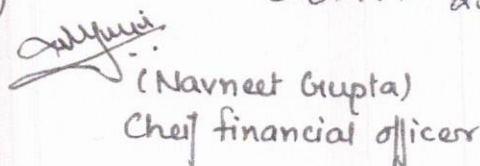 (Navneet Gupta)
Cheif financial officer